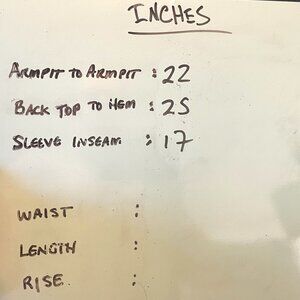 INCHES
ARMPIT TO ARMPIT : 22
BACK TOP TO HEM : 25
SLEEVE INSEAM : 17
WAIST :
LENGTH :
RISE :